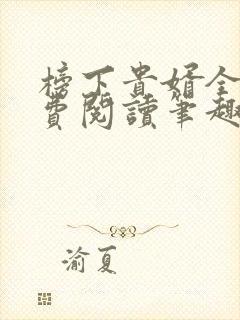 榜下貴婿全
費閱讀筆趣
渝夏